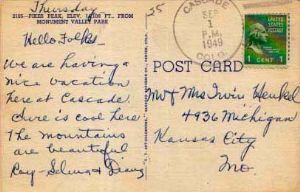 Thursday
2155—PIKES PEAK, ELEV. 14,109 FT., FROM
MONUMENT VALLEY PARK
Hello Folks—
We are having a
nice vacation
here at Cascade.
Sure is cool here
The mountains
are beautiful
Ray-Selma &
25
CASCADE
SEP
P.M.
1949
COLO.
1 CENT 1
POST CARD
Mr & Mrs Irvin Henkel
4936 Michigan
Kansas City
Mo.